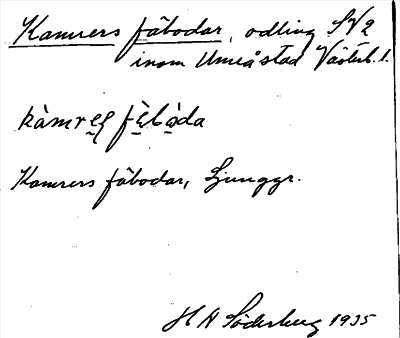 Kamrers fäbodar, odling SV2
inom Umeåstad Västerb. l.
kàmreʂ fä̀bòda
Kamrers fäbodar, Ljunggr.
H A Söderberg 1935